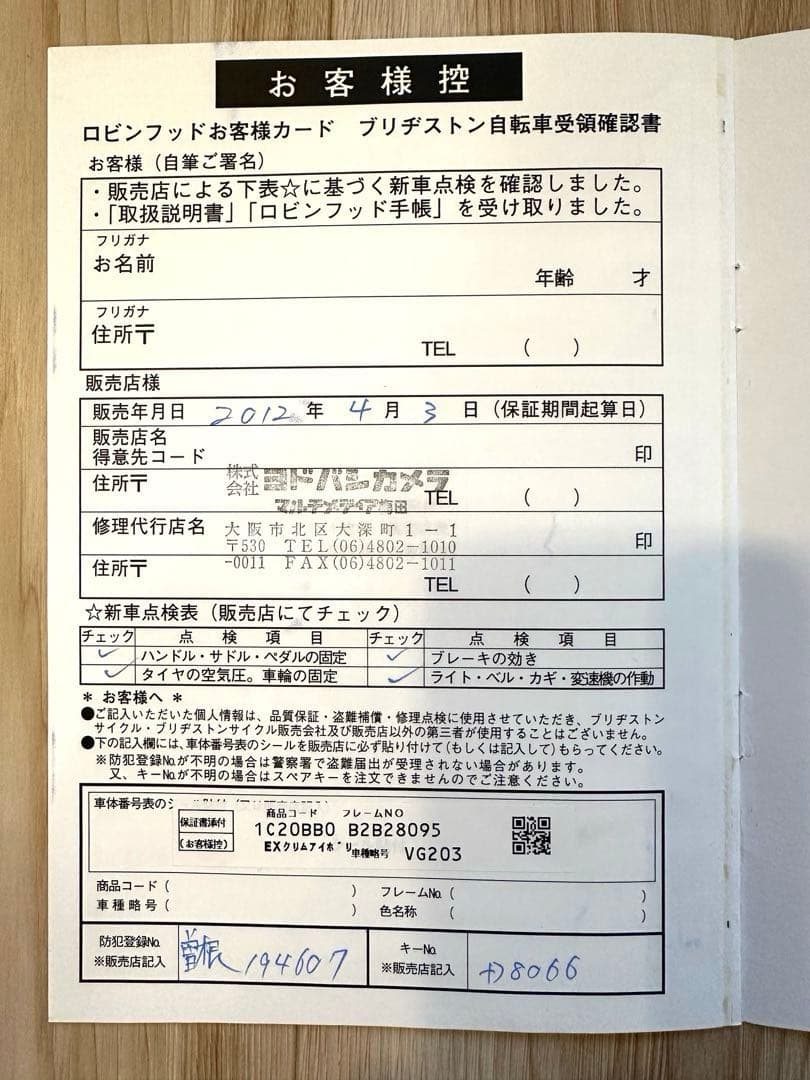 お客様控
ロビンフッドお客様カード ブリヂストン自転車受領確認書
お客様(自筆ご署名)
・販売店による下表☆に基づく新車点検を確認しました。
・「取扱説明書」「ロビンフッド手帳」を受け取りました。
フリガナ
お名前
年齢 才
フリガナ
住所〒
TEL ( )
販売店様
販売年月日 2012 年 4 月 3 日(保証期間起算日)
販売店名
得意先コード 印
株式会社 ヨドバシカメラ
住所〒 TEL ( )
マルチメディア梅田
修理代行店名 大阪市北区大深町1-1 印
〒530 TEL(06)4802-1010
-0011 FAX(06)4802-1011
住所〒
TEL ( )
☆新車点検表(販売店にてチェック)
チェック 点検項目 チェック 点検項目
✓ ハンドル・サドル・ペダルの固定 ✓ ブレーキの効き
✓ タイヤの空気圧。車輪の固定 ✓ ライト・ベル・カギ・変速機の作動
* お客様へ *
●ご記入いただいた個人情報は、品質保証・盗難補償・修理点検に使用させていただき、ブリヂストン
サイクル・ブリヂストンサイクル販売会社及び販売店以外の第三者が使用することはございません。
●下の記入欄には、車体番号表のシールを販売店に必ず貼り付けて(もしくは記入して)もらってください。
※防犯登録No.が不明の場合は警察署で盗難届出が受理されない場合があります。
又、キーNo.が不明の場合はスペアキーを注文できませんのでご注意ください。
車体番号表のシ
商品コード フレームNO
保証書添付 1C20BB0 B2B28095
(お客様控) EXクリムアイボリ 車種略号 VG203
商品コード( ) フレームNo.( )
車種略号( ) 色名称( )
防犯登録No. 曽根 194607 キーNo.
※販売店記入 ※販売店記入 8066